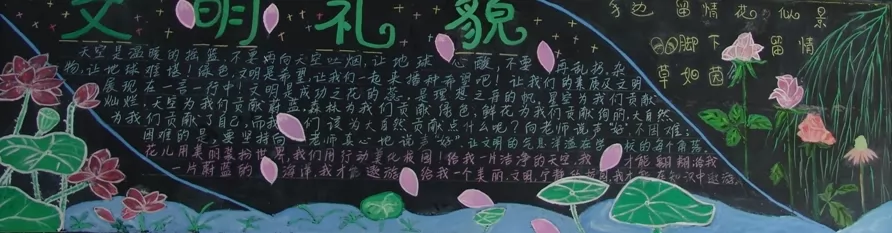 文明礼貌
手边留情花似景
脚下留情
草如茵
天空是温暖的摇篮,不要向天空吐烟,让地球心酸,不要再乱扔杂
物,让地球难堪!绿色,文明是希望,让我们一起来播种希望吧!让我们的素质及文明
展现在一言一行中!文明是成功之花的蕊,是理想之舟的帆,星空为我们贡献
灿烂,天空为我们贡献蔚蓝,森林为我们贡献绿色,鲜花为我们贡献绚丽,大自然
为我们贡献了自己,而我们该为大自然贡献点什么呢?向老师说声"好",不困难;
困难的是,要坚持向老师真心地说声"好"。让文明的气息洋溢在学校的每个角落。
花儿用美丽装扮世界,我们用行动美化校园!给我一片洁净的天空,我才能翱翔;给我
一片蔚蓝的海洋,我才能遨游;给我一个美丽,文明,宁静的校园,我才能在知识中遨游。